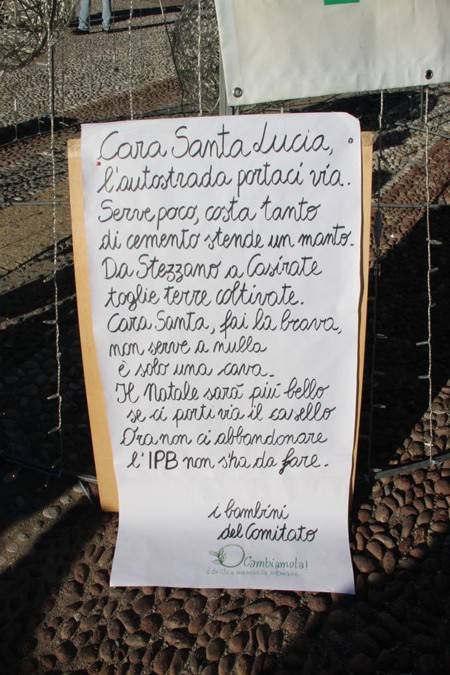 Cara Santa Lucia,
l'autostrada portaci via.
Serve poco, costa tanto
di cemento stende un manto.
Da Stezzano a Casirate
toglie terre coltivate.
Cara Santa, fai la brava,
non serve a nulla
è sto una cava.
Il Natale sarà più bello
se ci porti via il casello
Ora non ci abbandonare
l'IPB non sha da fare.
i bambini
del Comitato
Cambiamola!